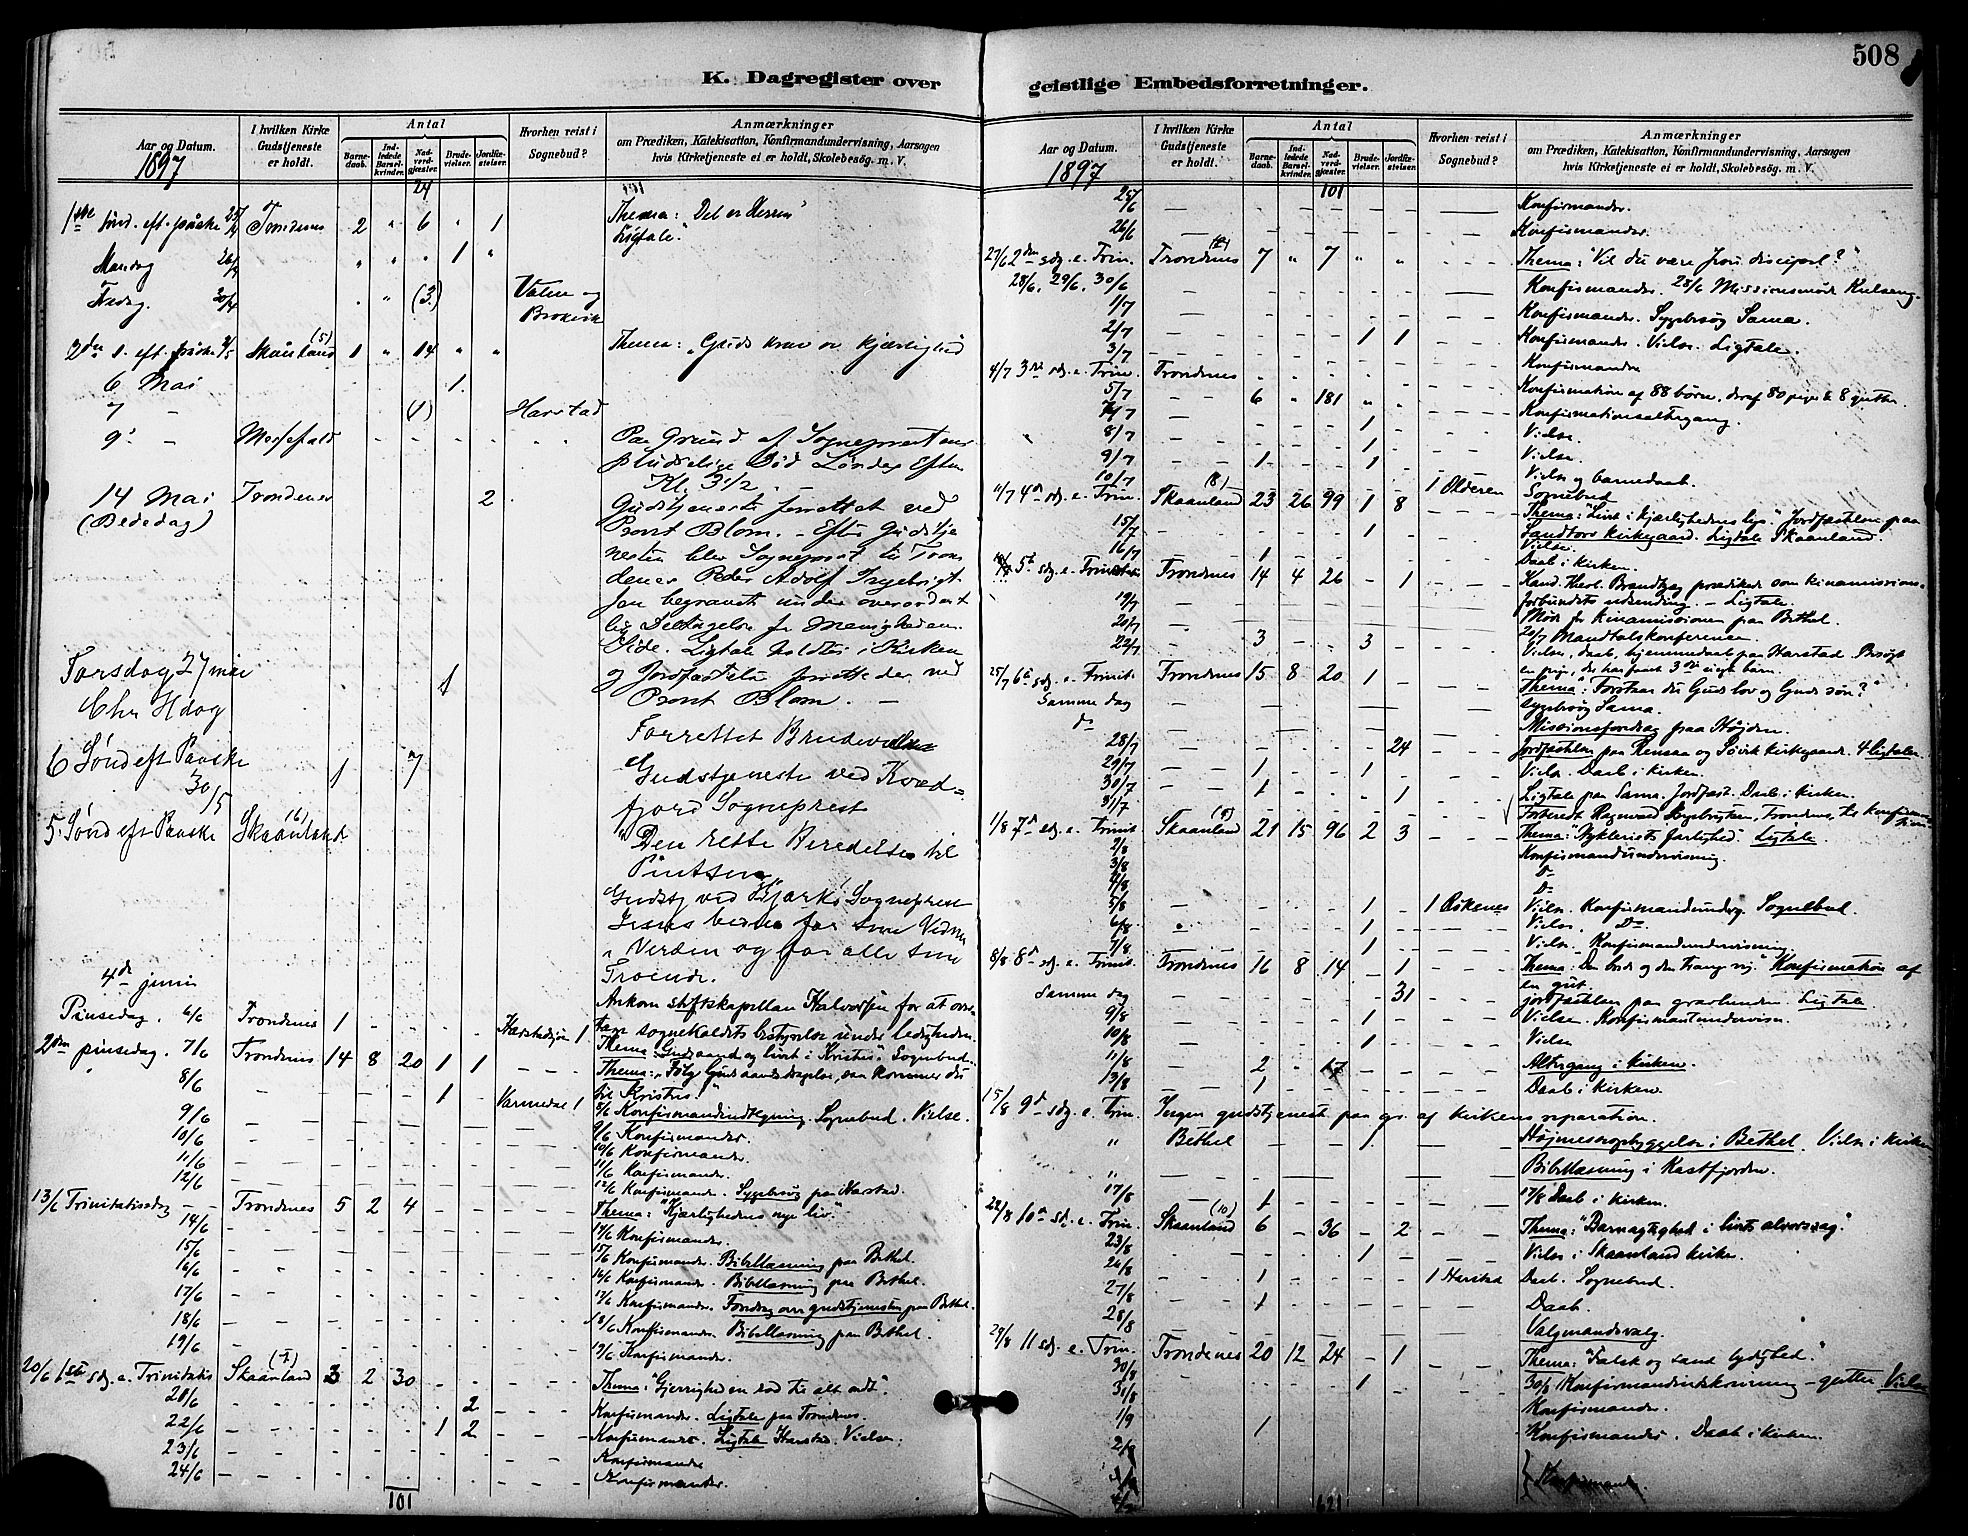 508
K. Dagregister over
geistlige Embedsforretninger.
Aar og Datum. 1897
I hvilken Kirke Gudstjeneste er holdt.
Antal
Barnedaab.
Indledede Barselkvinder.
Nadverdgjæster.
Brudevielser.
Jordfæstelser.
Hvorhen reist i Sognebud?
Anmærkninger
om Prædiken, Katekisation, Konfirmandundervisning, Aarsagen
hvis Kirketjeneste ei er holdt, Skolebesøg. m. V.
24
1ste sønd. eft. påske 25/4 Trondenes 2 " 6 " 1 Thema: "Det er Herren"
Ligtale.
Mandag 26/4 " " " 1 "
Fredag 30/4 (3)
2den s. eft. påske 2/5 Skånland (5) 1 " 14 " " Thema: "Guds krav er kjærlighed
6 Mai 1
7 - (1) Harstad
9 - Messefald Paa Grund af Sogneprestens
pludselige Død Løndag Eften
Kl. 3 1/2.
14 Mai Trondenes 2 Gudstjeneste forrettet ved
(Bededag) Provst Blom. - Efter Gudstje
nesten blev Sogneprest til Tron
denes Peder Adolf Ingebrigt
sen begravet under overordent
lig Deltagelse fr Menigheden
Side. Ligtale holdtes i Kirken
Torsdag 27 mai 1 og Jordfæstelse forrettedes ved
Chr Hdag Provst Blom. -
Forrettet Brudevielse
6 Sønd eft Paaske 1 7 Gudstjeneste ved Kvæd=
30/5 fjord Sogneprest
5. Sønd eft Paaske Skaanland (6) "Den rette Beredelse til
Pintsen"
Gudstj ved Bjarkø Sogneprest
Jesus beder for sine Vidner
i Verden og for alle sine
Troende.
4de juni Ankom stiftskapellan Halvorsen for at over
Pinsedag. 6/6 Trondenes 1 - - - - 1 tage sognekaldets bestyrelse under ledigheden.
2den pinsedag. 7/6 Trondenes 14 8 20 1 1 Thema: Guds aand og livet i Kristus. Sognebud.
8/6 1 1 Thema: "Følg Guds aands dragelse, saa kommer du
til Kristus."
9/6 8/6 Konfirmandindtegning. Sognebud. Vielse.
10/6 9/6 Konfirmander.
11/6 10/6 Konfirmander.
12/6 11/6 Konfirmander.
12/6 Konfirmander. Sygebesøg paa Harstad.
13/6 Trinitatissdag Trondenes 5 2 4 Thema: "Kjærlighedens nye liv."
14/6 14/6 Konfirmander.
15/6 15/6 Konfirmander. Bibellæsning paa Bethel.
16/6 16/6 Konfirmander. Bibellæsning paa Bethel.
17/6 17/6 Konfirmander. Foredrag om gudstjenesten paa Bethel.
18/6 18/6 Konfirmander. Bibellæsning paa Bethel.
19/6 19/6 Konfirmander.
20/6 1ste sdg. e. Trinitatis Skaanland (7) 3 2 30 Thema: "Gjerrighed en rod til alt ondt".
21/6 2 Konfirmander. Ligtale paa Trondenes.
22/6 1 2 Konfirmander. Ligtale Harstad. Vielse.
23/6 Konfirmander
24/6 Konfirmander.
101
Aar og Datum. 1897
I hvilken Kirke Gudstjeneste er holdt.
Antal
Barnedaab.
Indledede Barselkvinder.
Nadverdgjæster.
Brudevielser.
Jordfæstelser.
Hvorhen reist i Sognebud?
Anmærkninger
om Prædiken, Katekisation, Konfirmandundervisning, Aarsagen
hvis Kirketjeneste ei er holdt, Skolebesøg. m. V.
101
25/6 Konfirmander.
26/6 Konfirmander.
27/6 2den sdg. e. Trin. Trondenes 7 " 7 " " Thema: "Vil du være Jesu discipel?"
28/6, 29/6, 30/6 Konfirmander. 28/6 Missionsmøde
1/7 Konfirmander. Sygebesøg Sama.
2/7 1 1 Konfirmander. Vielse. Ligtale.
3/7 Konfirmander
4/7 3die sdg. e. Trin. Trondenes
5/7 6 " 181 " " Konfirmation af 88 børn, deraf 80 piger & 8 gutter.
7/7 1 Konfirmationsaltergang.
8/7 1 Vielse.
9/7 1 1 Vielse.
10/7 Vielse og barnedaab.
11/7 4de sdg. e. Trin. Skaanland (8) 23 26 99 1 8 1 Olderen Sognebud
Thema: "Livet i kjærlighedens lys." Jordfæstelse paa
15/7 1 Sandtorv kirkegaard. Ligtale Skaanland.
16/7 1 Vielse.
Daab i kirken.
5te sdg. e. Trinit. Trondenes 14 4 26 - 1 Kand. theol. Brandtzæg prædikede som kinamissions-
19/7 forbundets udsending. - Ligtale.
20/7 Møde for kinamissionen paa Bethel.
22/7 3 - - 3 20/7 Mandtalskonferense.
Vielser, daab, hjemmedaab paa Harstad. Besøgt
25/7 6te sdg. e. Trinit. Trondenes 15 8 20 1 - en pige, der har faaet 3die uægte barn.
Samme dag Thema: "Forstaar du Guds lov og Guds søn?"
Sygebesøg Sama.
Missionsforedrag paa Højden.
28/7 24 Jordfæstelser paa Rensaa og Sørvik kirkegaard. 4 ligtaler
29/7 1 - - 1 Vielse. Daab i kirken.
30/7 1 - - - 1 Ligtale paa Sama. Jordfæst. Daab i kirken.
31/7
1/8 7de sdg. e. Trinit. Skaanland (9) 21 15 96 2 3 Thema: "Hykleriets farlighed". Ligtale.
2/8 Konfirmandundervisning.
3/8 Do
4/8 Do
5/8 1 - 1 Aakenes Vielse. Konfirmandunderv. Sognebud.
6/8 1 Vielse. Do
7/8 1 Vielse. Konfirmandundervisning.
8/8 8de sdg. e. Trinit. Trondenes 16 8 14 - 1 Thema: "Den brede og den trange vej." Konfirmation af
en gut.
Samme dag 31 jordfæstelser paa gravlunden. Ligtale
9/8 1 Vielse. Konfirmantundervisn.
10/8 1 Vielse
11/8 2 - 17 Altergang i kirken.
13/8 1 Daab i kirken.
15/8 9de sdg. e. Trin. Ingen gudstjeneste paa gr. af kirkens reparation.
" Bethel 1 Højmesseopbyggelse i Bethel. Vielse i kirken
" Bibellæsning i Kastfjorden.
17/8 1 17/8 Daab i kirken.
22/8 10de sdg. e. Trin. Skaanland (10) 6 - 36 - 2 Thema: "Barnagtighed i livets alvorsdag."
23/8 1 Vielse i Skaanland kirke.
26/8 1 1 Harstad Daab. Sognebud.
27/8 1 Daab.
28/8 Valgmandsvalg.
29/8 11 sdg. e. Trin. Trondenes 20 12 24 - 1 Thema: "Falsk og sand lydighed."
30/8 1 30/8 Konfirmandindskrivning - gutter Vielse
31/8 Konfirmander.
1/9 1 Konfirmander. Daab i kirken.
2/9
3/9 Konfirmander
4/9
621